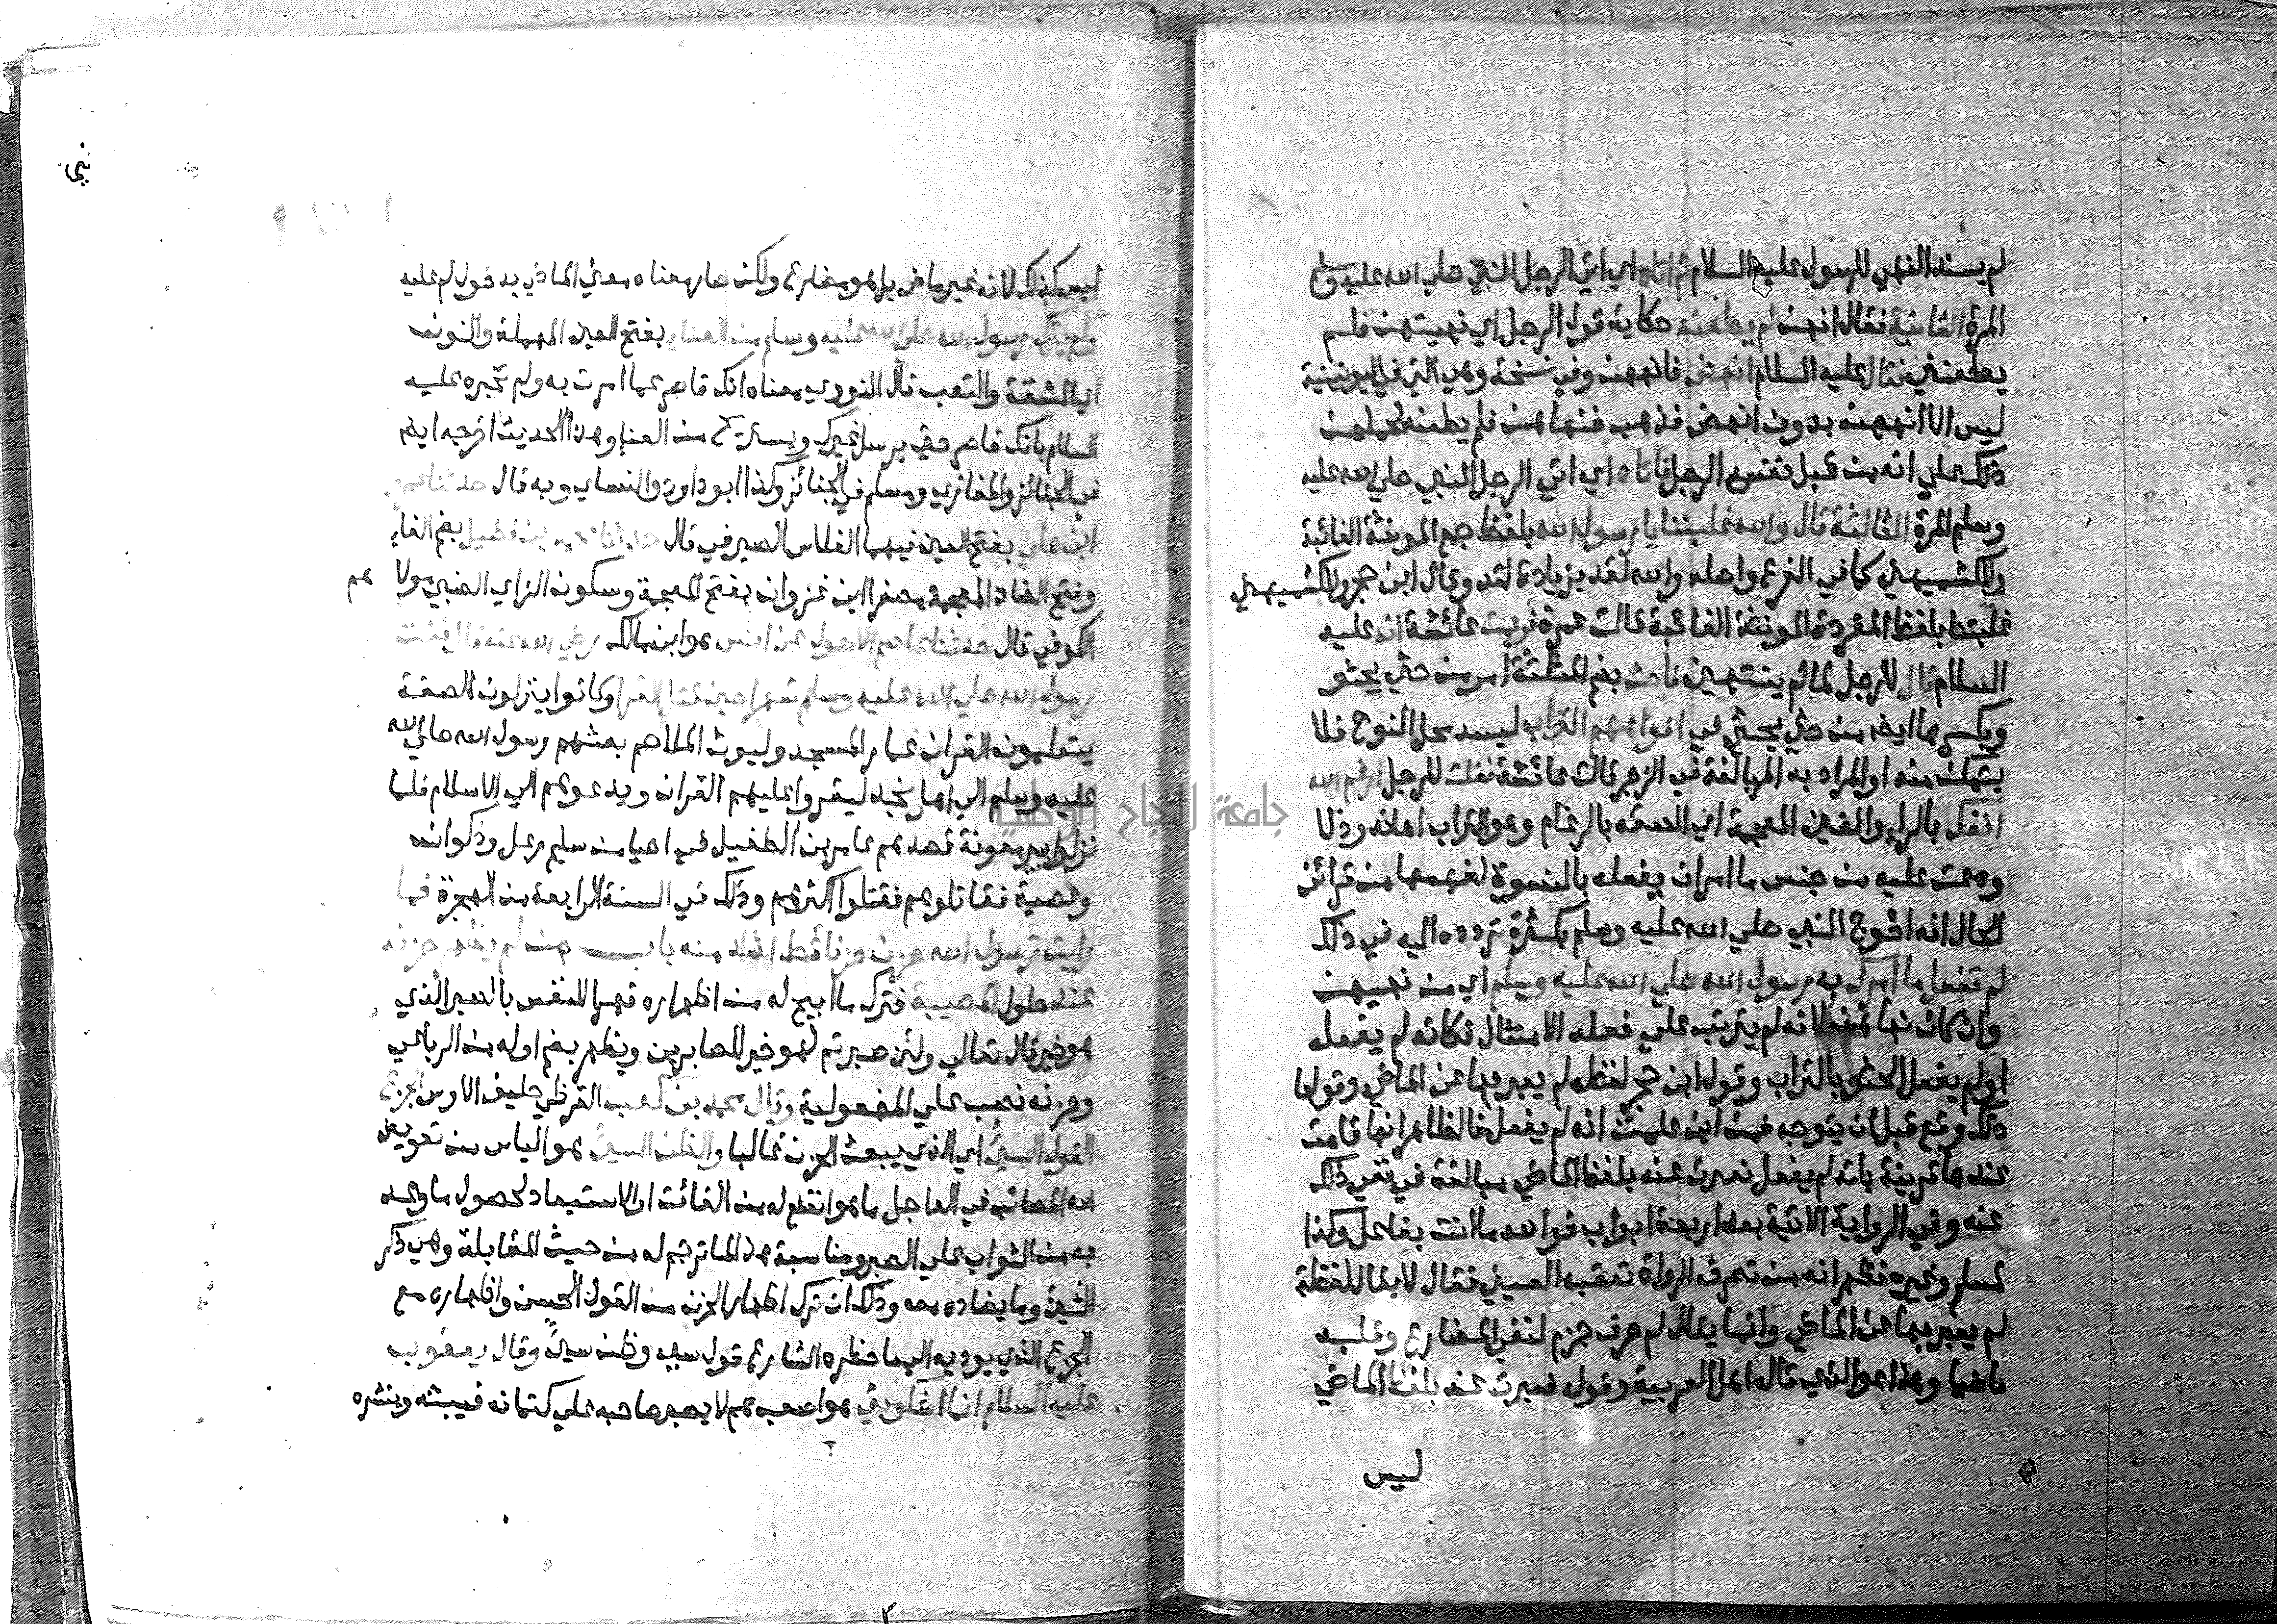 لم يسند النهي للرسول عليه السلام ثم اتاه اي اتي الرجل النبي صلي الله عليه وسلم
المرة الثانية فقال انهن لم يطعنه حكاية قول الرجل اي نهيتهن فلم
يطعنني فقال عليه السلام انهض فانههن وفي نسخة وهي التي في اليونينية
ليس الا انههن بدون انهض فذهب فنهاهن فلم يطعنه لحملهن
ذلك علي انه من قبل نفس الرجل فاتاه اي اتي الرجل النبي صلي الله عليه
وسلم المرة الثالثة قال والله غلبننا يا رسول الله بلفظ جمع المونثة الغائبة
وللكشميهني كما في الفرع واصله والله لقد بزيادة لقد وقال ابن حجر وللكشميهني
غلبتنا بلفظ المفردة المونثة الغائبة قالت عمرة فزعمت عائشة انه عليه
السلام قال للرجل لما لم ينتهين فاحث بضم المثلثة امر من حثي يحثو
وبكسرها ايضا من حثي يحثي في افواههن التراب ليسد محل النوح فلا
يتمكن منه او المراد به المبالغة في الزجر قالت عائشة فقلت للرجل ارغم الله
انفك بالراء والغين المعجمة اي الصقه بالرغام وهو التراب اهانة وذلا
ودعت عليه من جنس ما امر ان يفعله بالنسوة لفهمها من قرائن
الحال انه احرج النبي صلي الله عليه وسلم بكثرة تردده اليه في ذلك
لم تفعل ما امرك به رسول الله صلي الله عليه وسلم اي من نهيهن
وان كان نهاهن لانه لم يترتب علي فعله الامتثال فكانه لم يفعله
او لم يفعل الحثو بالتراب وقول ابن حجر لفظة لم يعبر بها عن الماضي وقولها
ذلك وقع قبل ان يتوجه فمن اين علمت انه لم يفعل فالظاهر انها قامت
عندها قرينة بانه لم يفعل فعبرت عنه بلفظ الماضي مبالغة في نفي ذلك
عنه وفي الرواية الاتية بعد اربعة ابواب فوالله ما انت بفاعل وكذا
لمسلم وغيره فظهر انه من تصرف الرواة تعقبه العيني فقال لا يقال للفظة
لم يعبر بها عن الماضي وانما يقال لم حرف جزم لنفي المضارع وقلبه
ماضيا وهذا هو الذي قاله اهل العربية وقوله فعبرت عنه بلفظ الماضي
ليس
ليس كذلك لانه غير ماض بل هو مضارع ولكن صار معناه معني الماضي بدخول لم عليه
ولم يترك رسول الله صلي الله عليه وسلم من العناء بفتح العين المهملة والنون
اي المشقة والتعب قال النووي معناه انك قاصر عما امرت به ولم تخبره عليه
السلام بانك قاصر حتي يرسل غيرك ويستريح من العنا وهذا الحديث اخرجه ايضا
في الجنائز والمغازي ومسلم في الجنائز وكذا ابو داود والنساي وبه قال حدثنا عمرو
ابن علي بفتح العين فيهما الفلاس الصيرفي قال حدثنا محمد بن فضيل بضم الفاء
وفتح الضاد المعجمة مصغرا ابن غزوان بفتح المعجمة وسكون الزاي الضبي مولاهم
الكوفي قال حدثنا عاصم الاحول عن انس هو ابن مالك رضي الله عنه قال قنت
رسول الله صلي الله عليه وسلم شهرا حين قتل القرا وكانوا ينزلون الصفة
يتعلمون القران عمار المسجد وليوث الملاحم بعثهم رسول الله صلي الله
عليه وسلم الي اهل نجد ليقروا عليهم القران ويدعوهم الي الاسلام فلما
نزلوا ببير معونة قصدهم عامر بن الطفيل في احيا من سليم رعل وذكوان
وعصية فقاتلوهم فقتلوا اكثرهم وذلك في السنة الرابعة من الهجرة فما
رايت رسول الله حزن حزنا قط اشد منه باب من لم يظهر حزنه
عند حلول المصيبة فترك ما ابيح له من اظهاره قهرا للنفس بالصبر الذي
هو خير قال تعالي ولئن صبرتم لهو خير للصابرين ويظهر بضم اوله من الرباعي
وحزنه نصب علي المفعولية وقال محمد بن كعب القرظي حليف الاوس الجزع
القول السيئ اي الذي يبعث الحزن غالبا والظن السيئ هو الياس من تعويض
الله المصاب في العاجل ما هو انفع له من الفائت او الاستبعاد لحصول ما وعد
به من الثواب علي الصبر ومناسبة هذا لما ترجم له من حيث المقابلة وهي ذكر
الشيئ وما يضاده معه وذلك ان ترك اظهار الحزن من القول الحسن واظهاره مع
الجزع الذي يوديه الي ما حظره الشارع قول سيئ وظن سيئ وقال يعقوب
عليه السلام انما اشكو بثي هو اصعب هم لا يصبر صاحبه علي كتمانه فيبثه وينشره